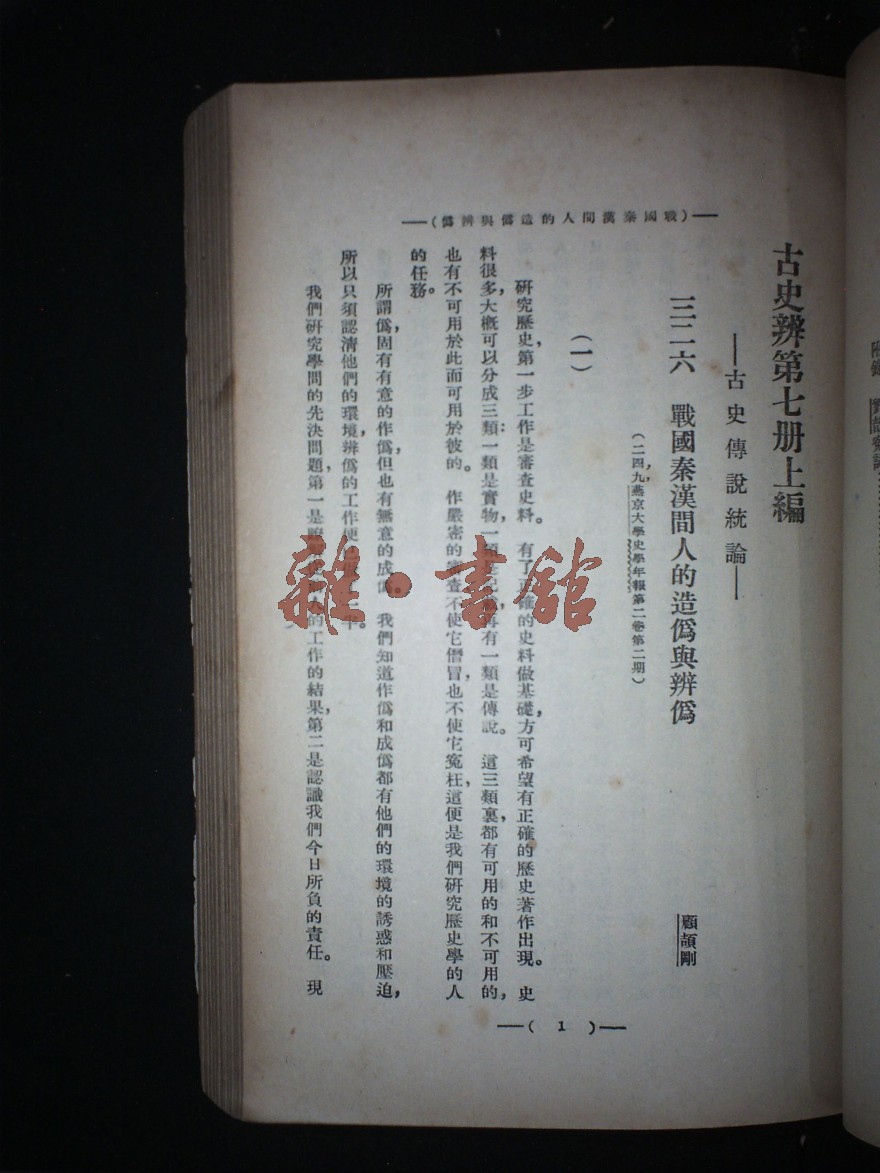 (戰國秦漢間人的造僞與辨僞)
古史辨第七册上編
——古史傳說統論——
三二六 戰國秦漢間人的造僞與辨僞
顧頡剛
(二四,九,燕京大學史學年報第二卷第二期)
(一)
研究歷史,第一步工作是審查史料。 有了正確的史料做基礎,方可希望有正確的歷史著作出現。 史
料很多,大概可以分成三類:一類是實物,一類是記載,再有一類是傳說。 這三類裏都有可用的和不可用的,
也有不可用於此而可用於彼的。 作嚴密的審查,不使它僭冒,也不使它寃枉,這便是我們研究歷史學的人
的任務。
所謂僞,固有有意的作僞,但也有無意的成僞。 我們知道作僞和成僞都有他們的環境的誘惑和壓迫,
所以只須認清他們的環境,辨僞的工作便半。
我們研究學問的先決問題,第一是人的工作的結果,第二是認識我們今日所負的責任。 現
—( 1 )—
雜·書館